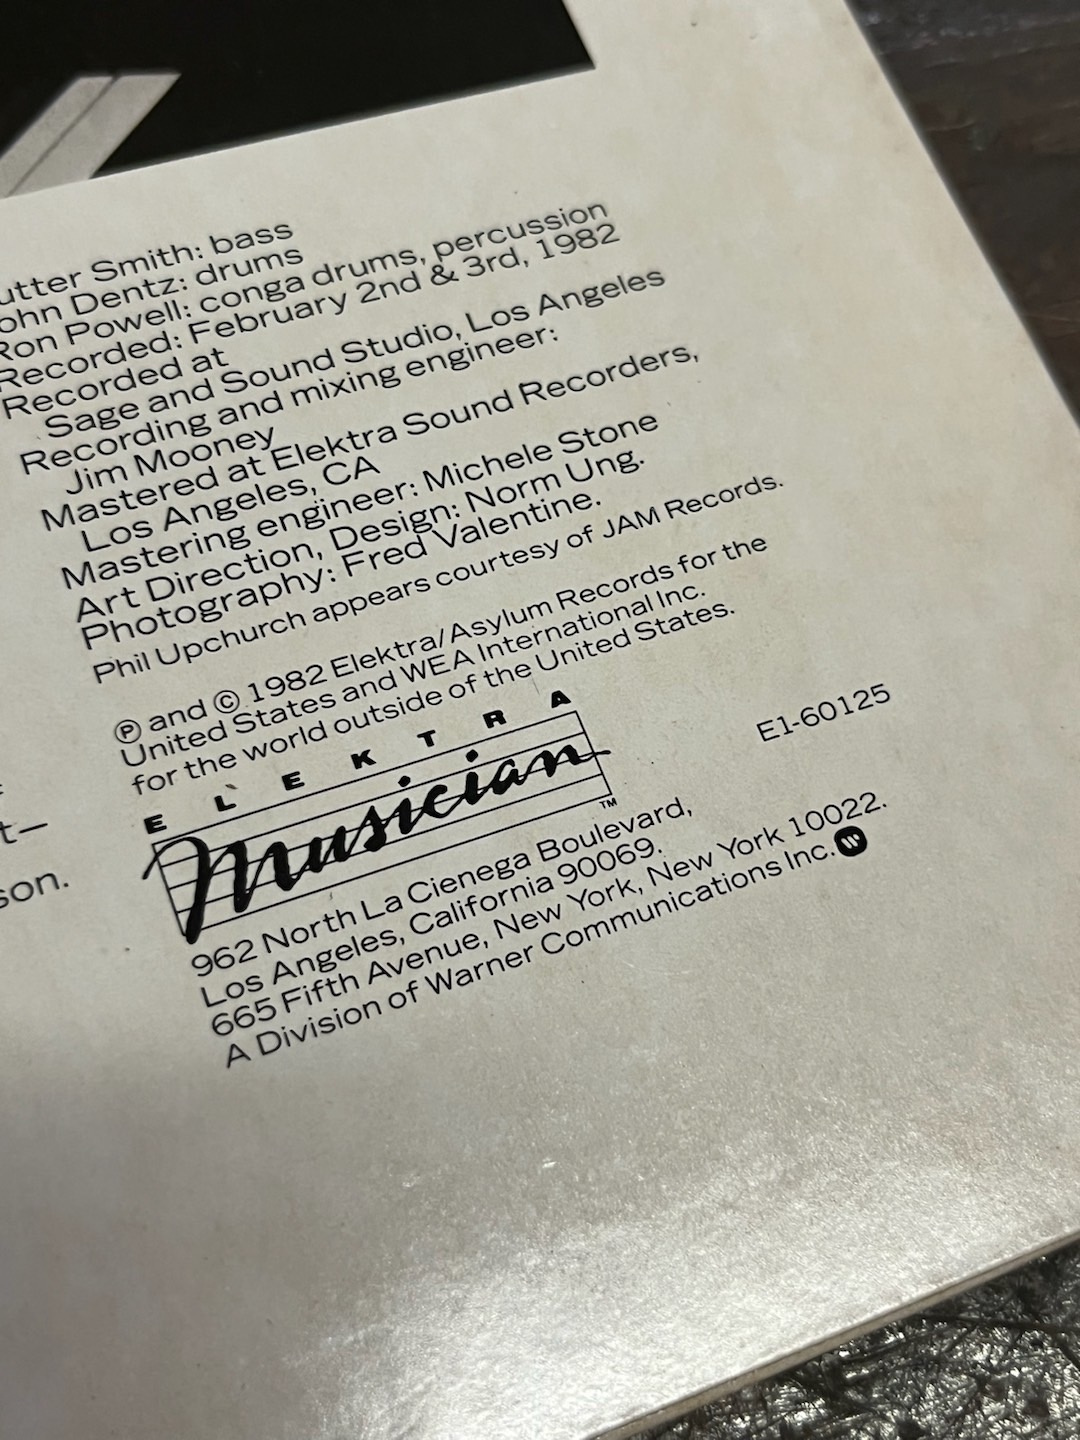 utter Smith: bass
ohn Dentz: drums
Ron Powell: conga drums, percussion
Recorded: February 2nd & 3rd, 1982
Recorded at
Sage and Sound Studio, Los Angeles
Recording and mixing engineer:
Jim Mooney
Mastered at Elektra Sound Recorders,
Los Angeles, CA
Mastering engineer: Michele Stone
Art Direction, Design: Norm Ung.
Photography: Fred Valentine.
Phil Upchurch appears courtesy of JAM Records.
℗ and © 1982 Elektra/Asylum Records for the
United States and WEA International Inc.
for the world outside of the United States.
ELEKTRA
Musician
TM
E1-60125
t–
son.
962 North La Cienega Boulevard,
Los Angeles, California 90069.
665 Fifth Avenue, New York, New York 10022.
A Division of Warner Communications Inc.